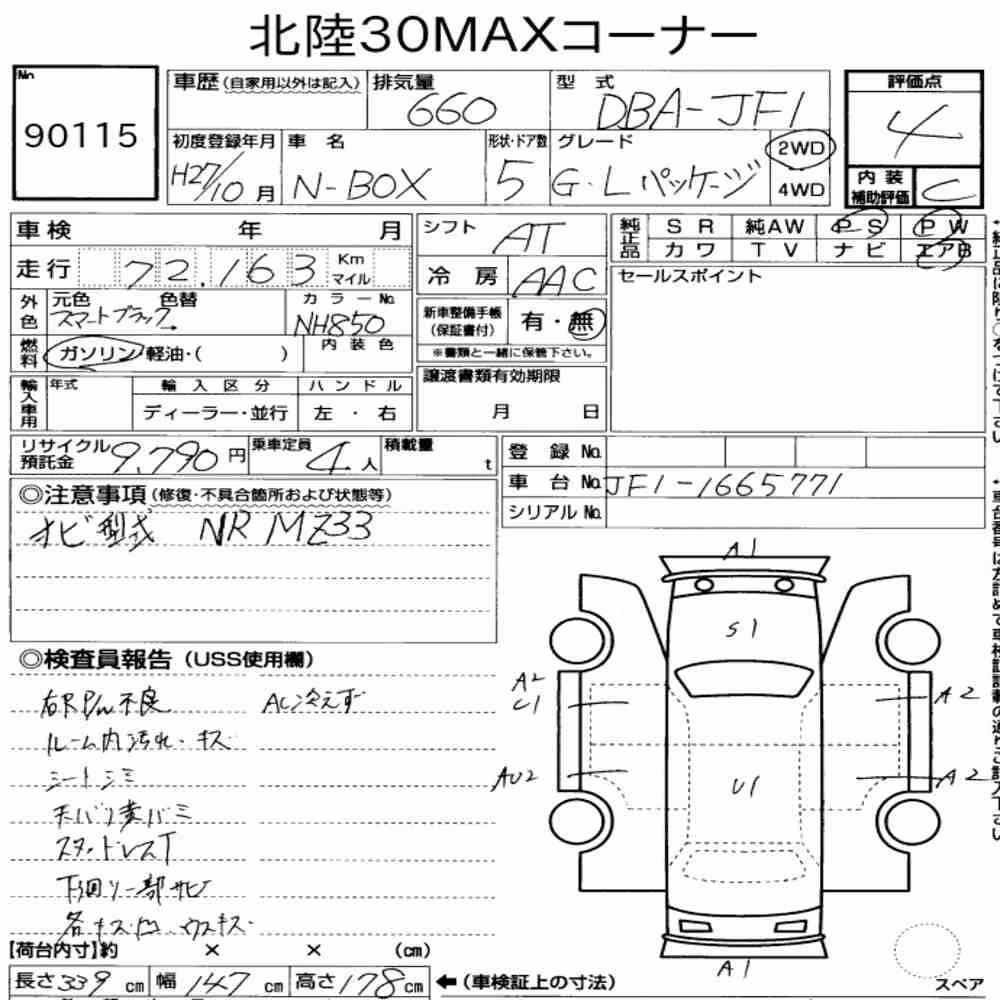 北陸30MAXコーナー
No
90115
車歴 (自家用以外は記入)
排気量
660
型式
DBA-JF1
評価点
4
初度登録年月
H27/10月
車名
N-BOX
形状・ドア数
5
グレード
G・Lパッケージ
2WD
4WD
内装
補助評価
C
車検 年 月
シフト
AT
純正品
SR 純AW PS PW
カワ TV ナビ エアB
走行 72,163 Km
マイル
冷房
AAC
セールスポイント
外色
元色 色替
スマートブラック
カラーNo.
NH850
新車整備手帳
(保証書付)
有・無
※書類と一緒に保管下さい。
燃料
ガソリン・軽油・( )
内装色
譲渡書類有効期限
月 日
輸入車用
年式
輸入区分
ハンドル
ディーラー・並行
左・右
リサイクル
預託金
9,790円
乗車定員
4人
積載量
t
登録No.
車台No.
JF1-1665771
シリアルNo.
◎注意事項(修復・不具合箇所および状態等)
オビ型式 NR MZ33
◎検査員報告(USS使用欄)
右R P/W不良 AC冷えず
ルーム内汚れ・キズ
シートシミ
天バリ黄バミ
スタッドレスT
下回り一部サビ
各キズ凹 ウスキズ
A1
S1
A2
U1
A2
AU2
U1
A2
A1
【荷台内寸】約 × × (cm)
長さ339cm 幅147cm 高さ178cm
←(車検証上の寸法)
スペア